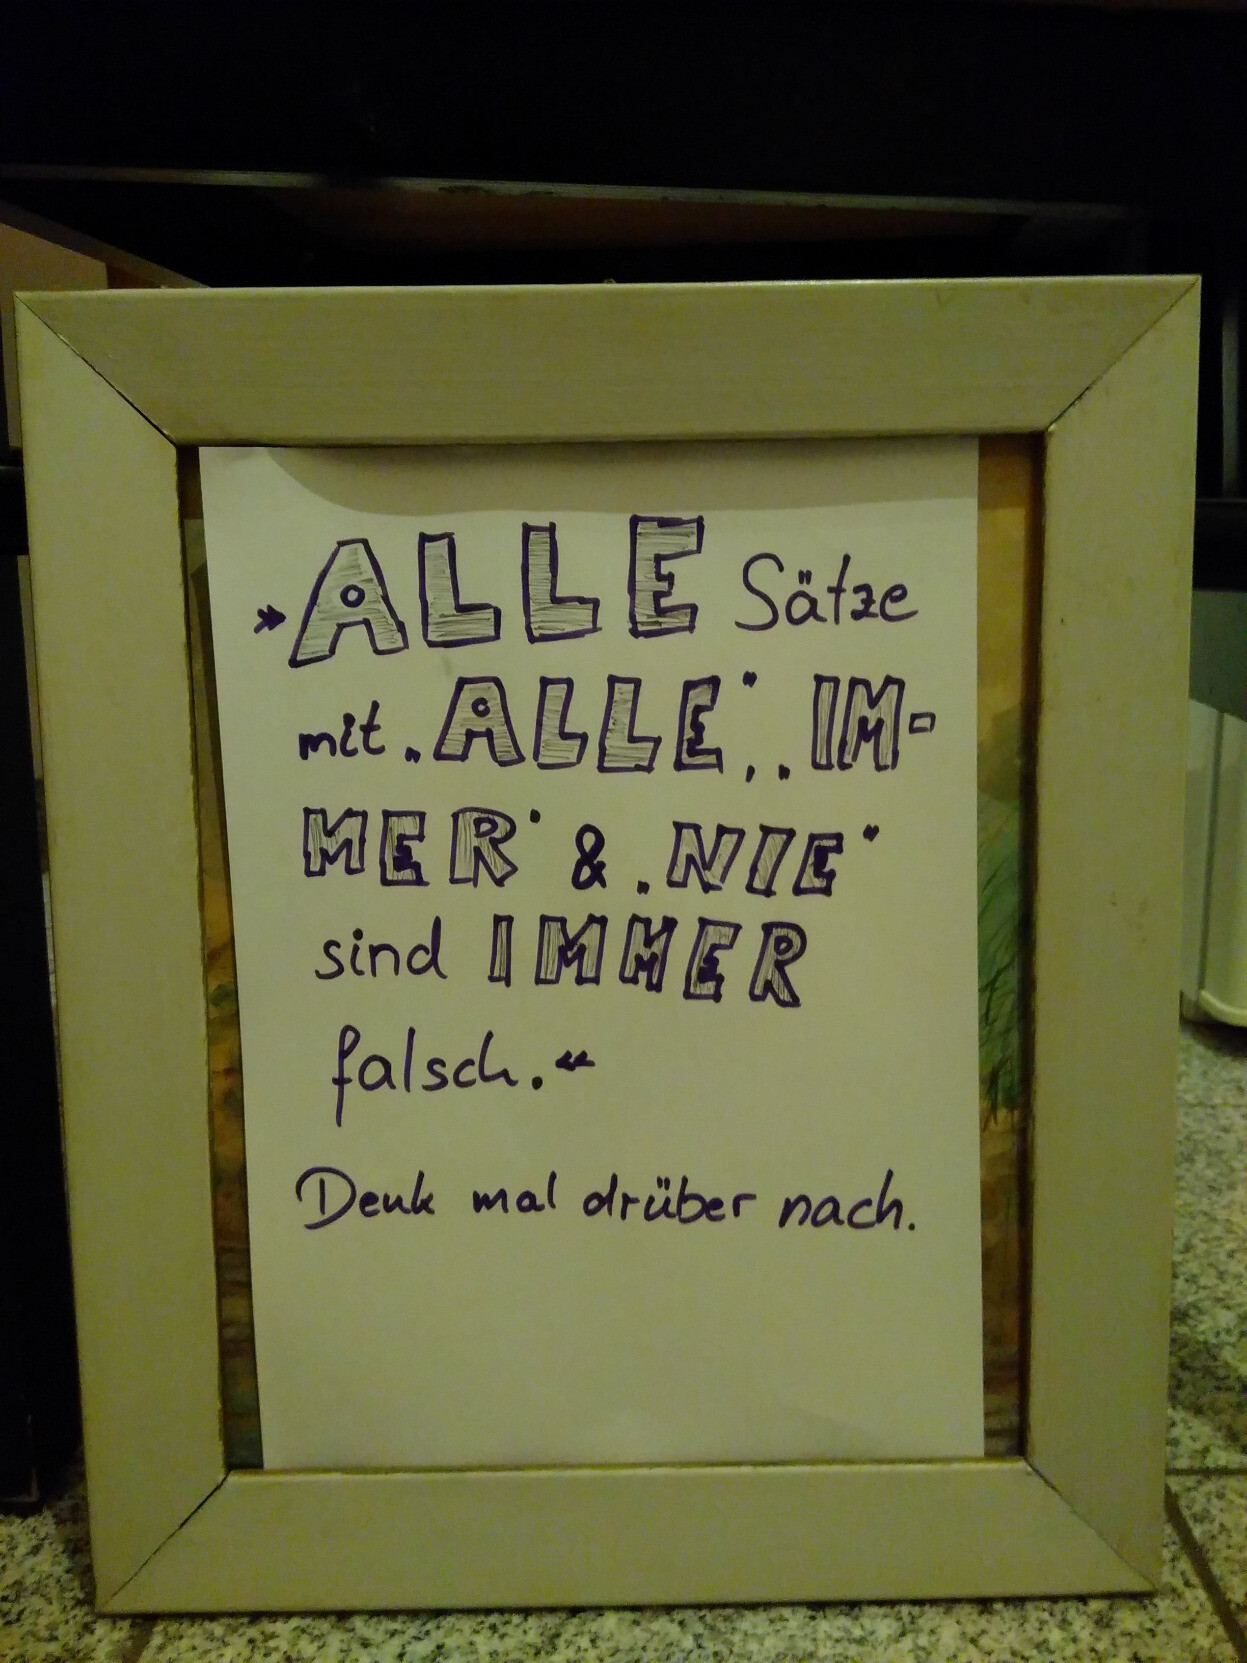 »ALLE Sätze
mit „ALLE“, „IM-
MER“ & „NIE“
sind IMMER
falsch.«
Denk mal drüber nach.